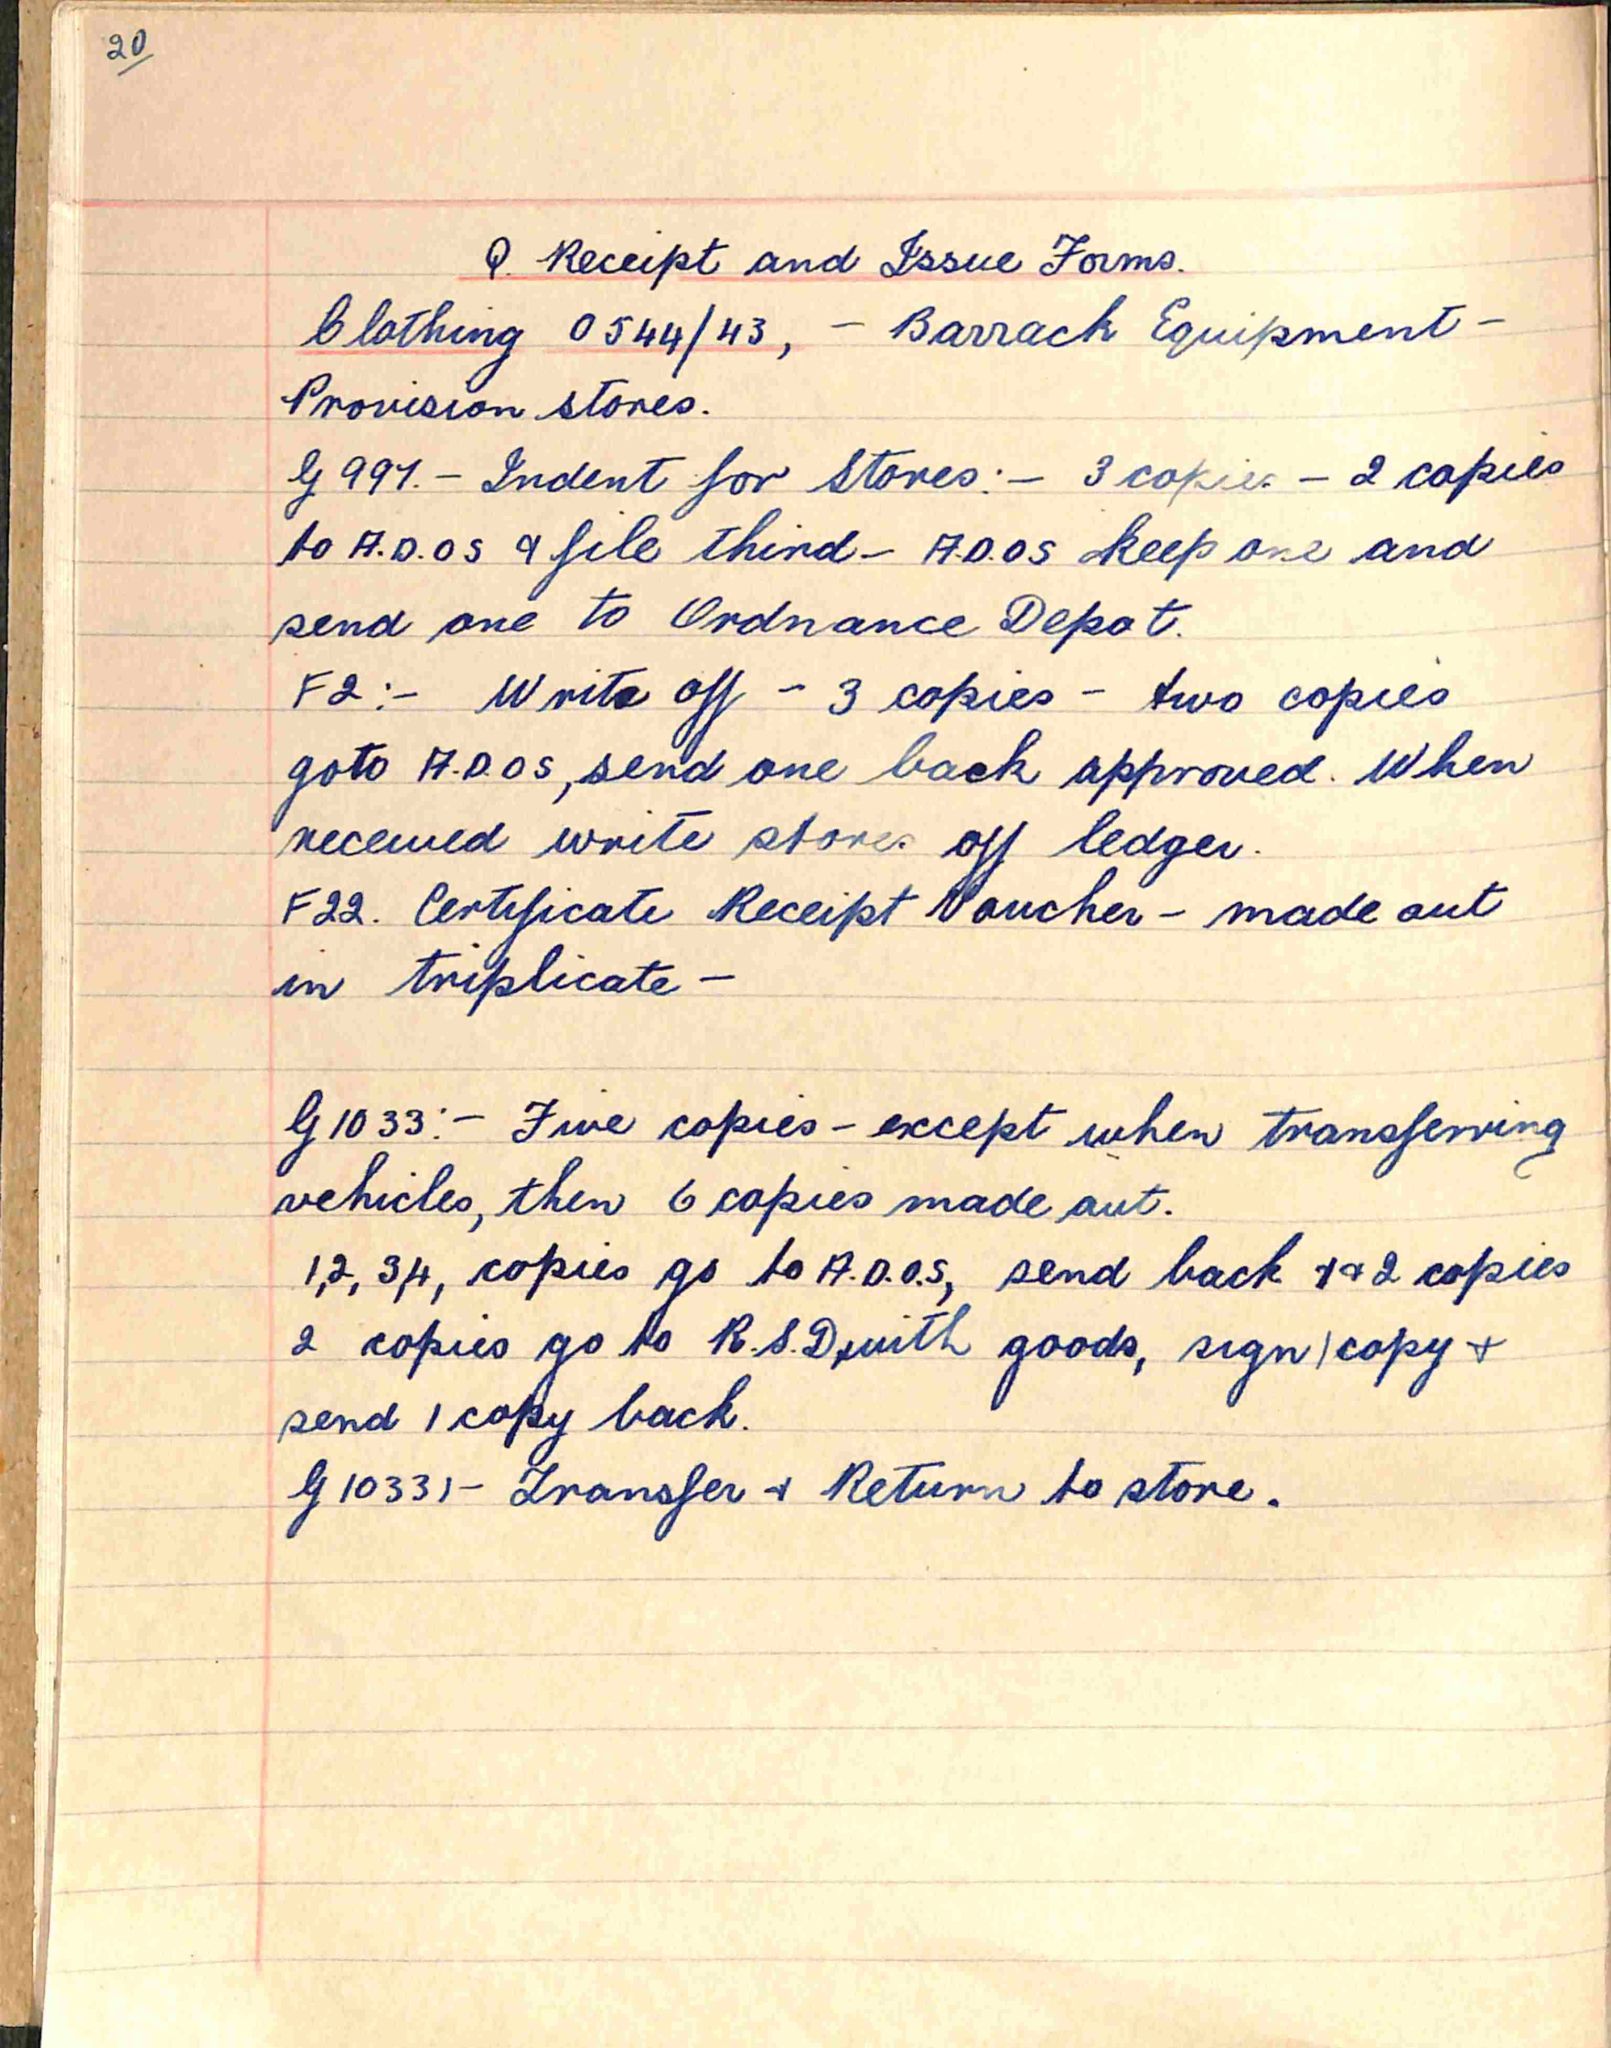 20
Q. Receipt and Issue Forms.
Clothing 0544/43, - Barrack Equipment -
Provision stores.
G 997. - Indent for Stores:- 3 copies - 2 copies
to A.D.OS & file third - A.D.OS keep one and
send one to Ordnance Depot.
F2:- Write off - 3 copies - two copies
go to A.D.OS, send one back approved. When
received write stores off ledger.
F22. Certificate Receipt Voucher - made out
in triplicate -
G 1033:- Five copies - except when transferring
vehicles, then 6 copies made out.
1,2, 3,4, copies go to A.D.O.S, send back 1 & 2 copies
2 copies go to R.S.D, with goods, sign 1 copy &
send 1 copy back.
G 1033:- Transfer & Return to store.